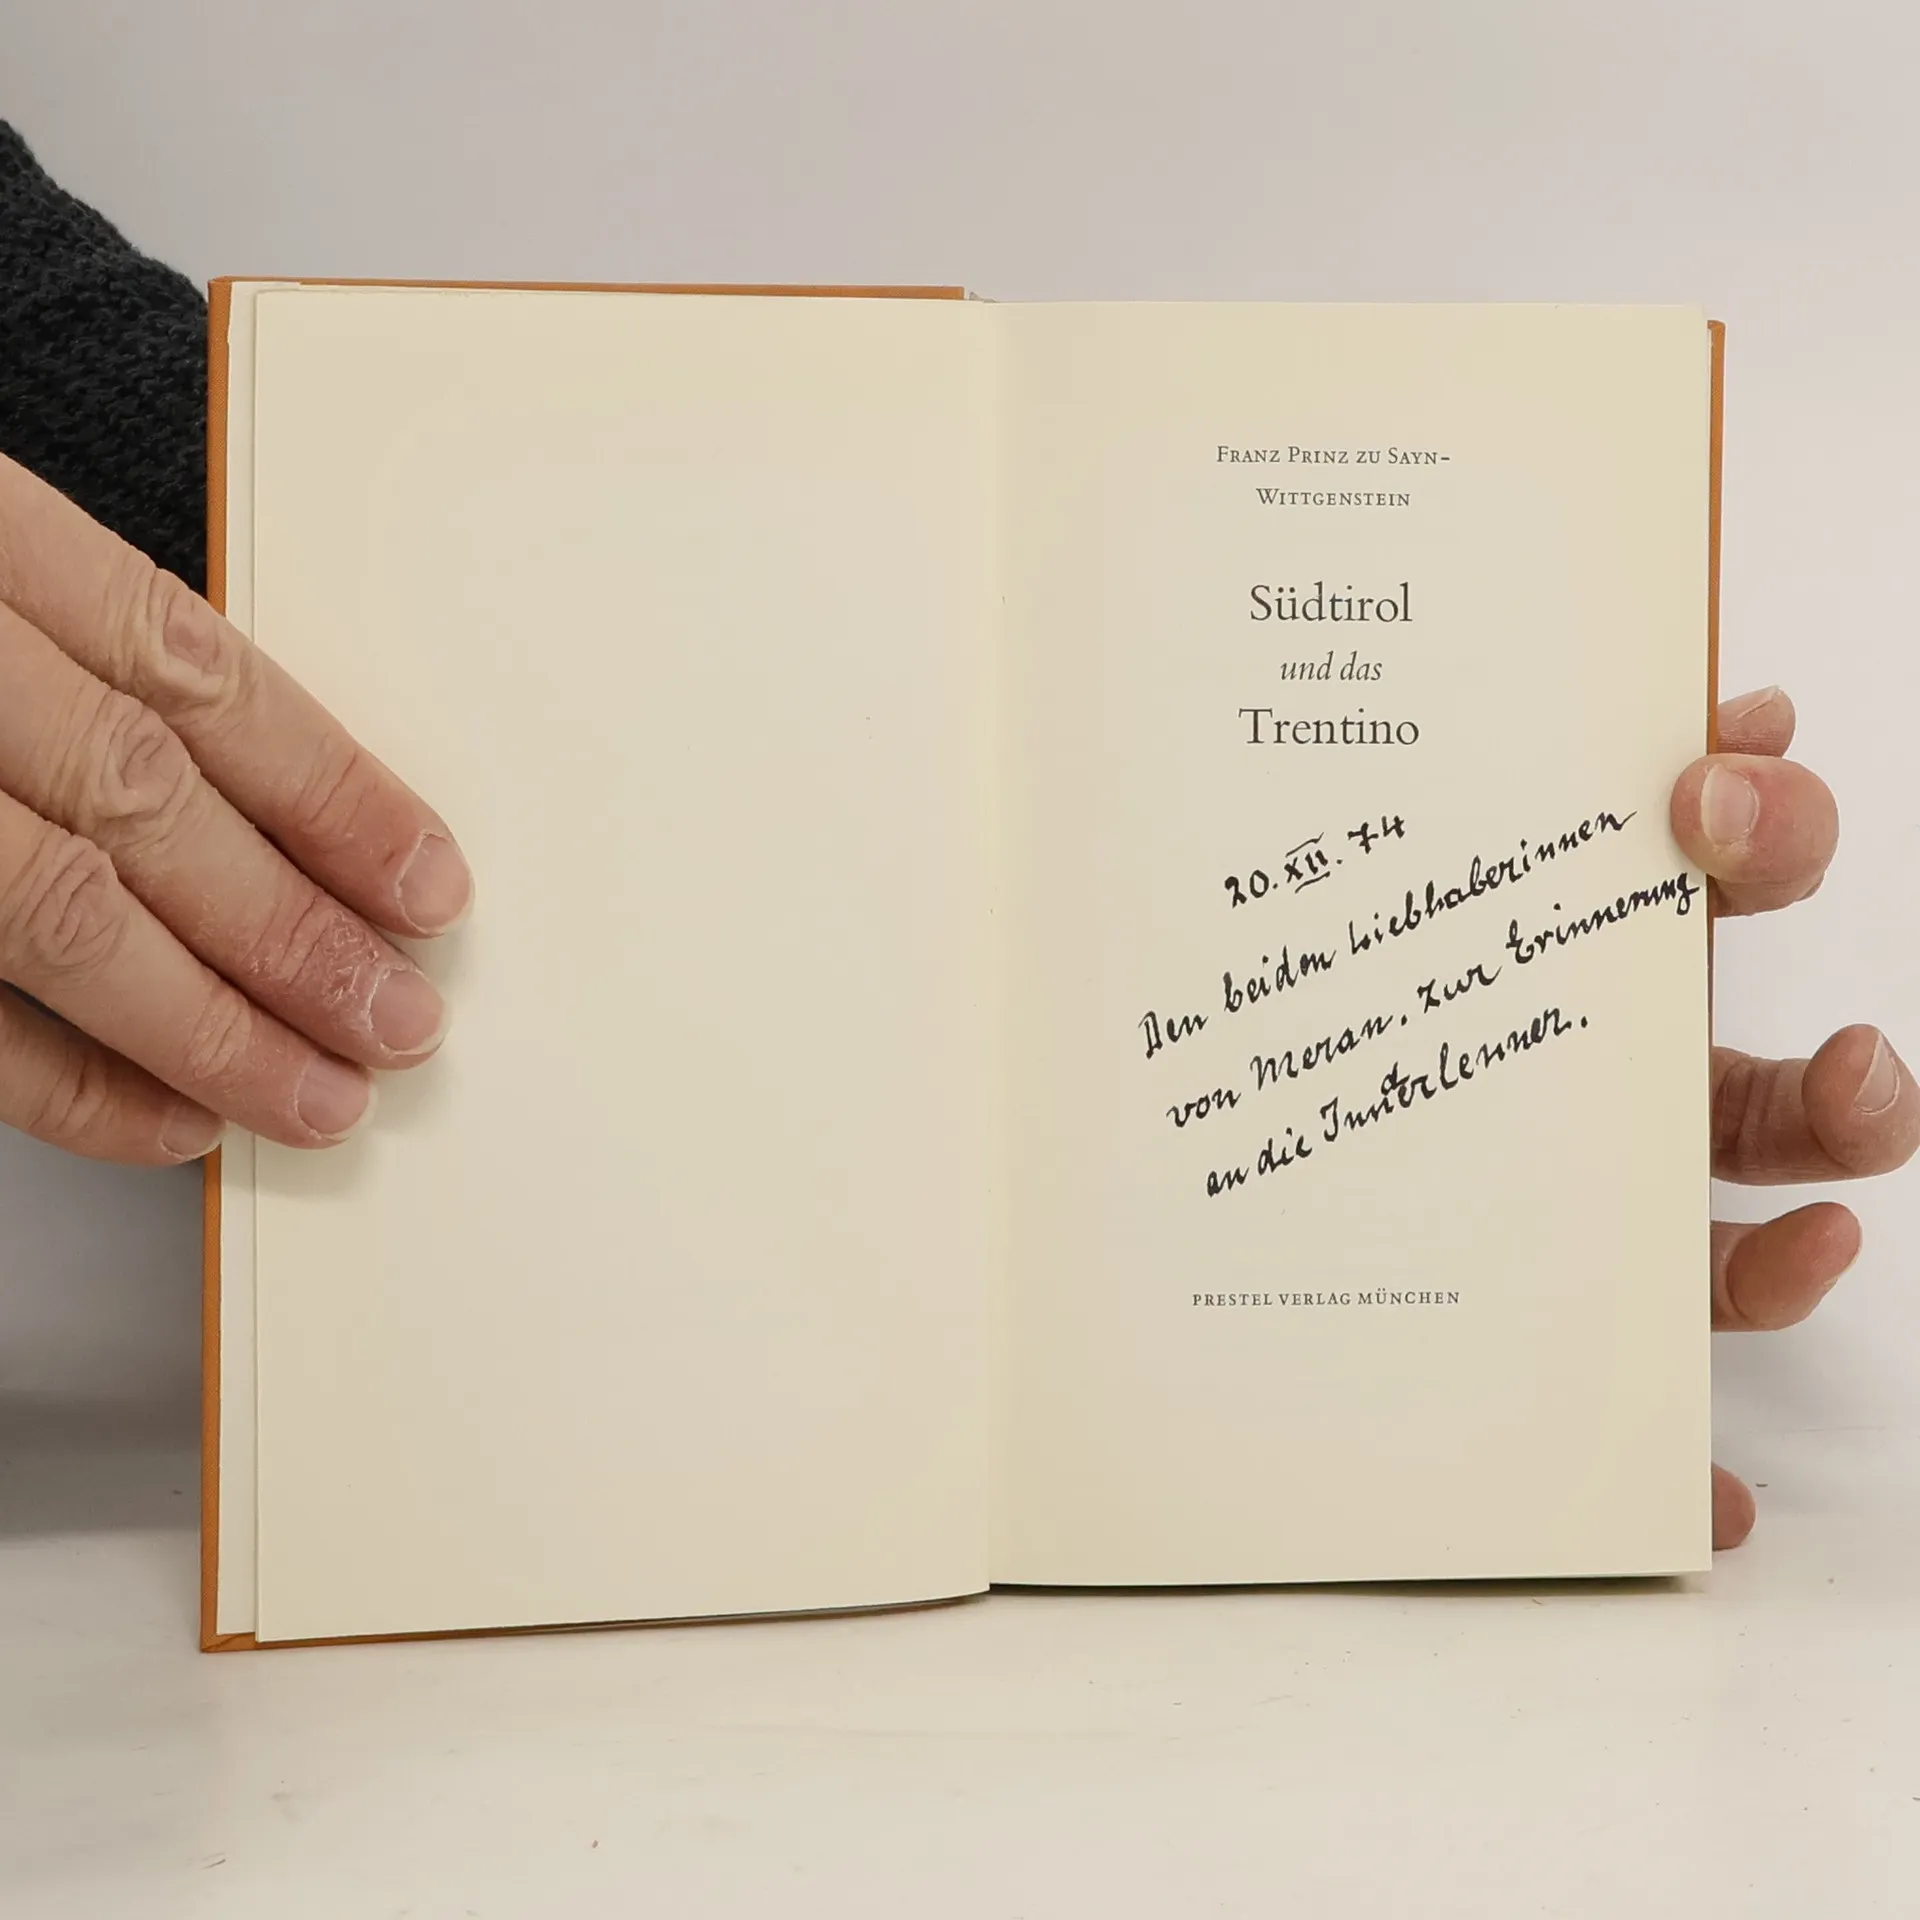 Franz Prinz zu Sayn-
Wittgenstein
Südtirol
und das
Trentino
20. XII. 74
Den beiden Liebhaberinnen
von Meran. Zur Erinnerung
an die Innderlenner.
PRESTEL VERLAG MÜNCHEN